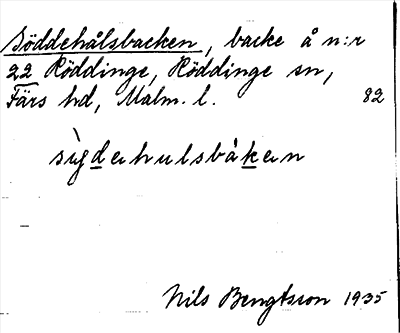 Söddehålsbacken, backe å n:r
22 Röddinge, Röddinge sn,
Färs hd, Malm. l. 82
sı̀gdehulsbåken
Nils Bengtsson 1935